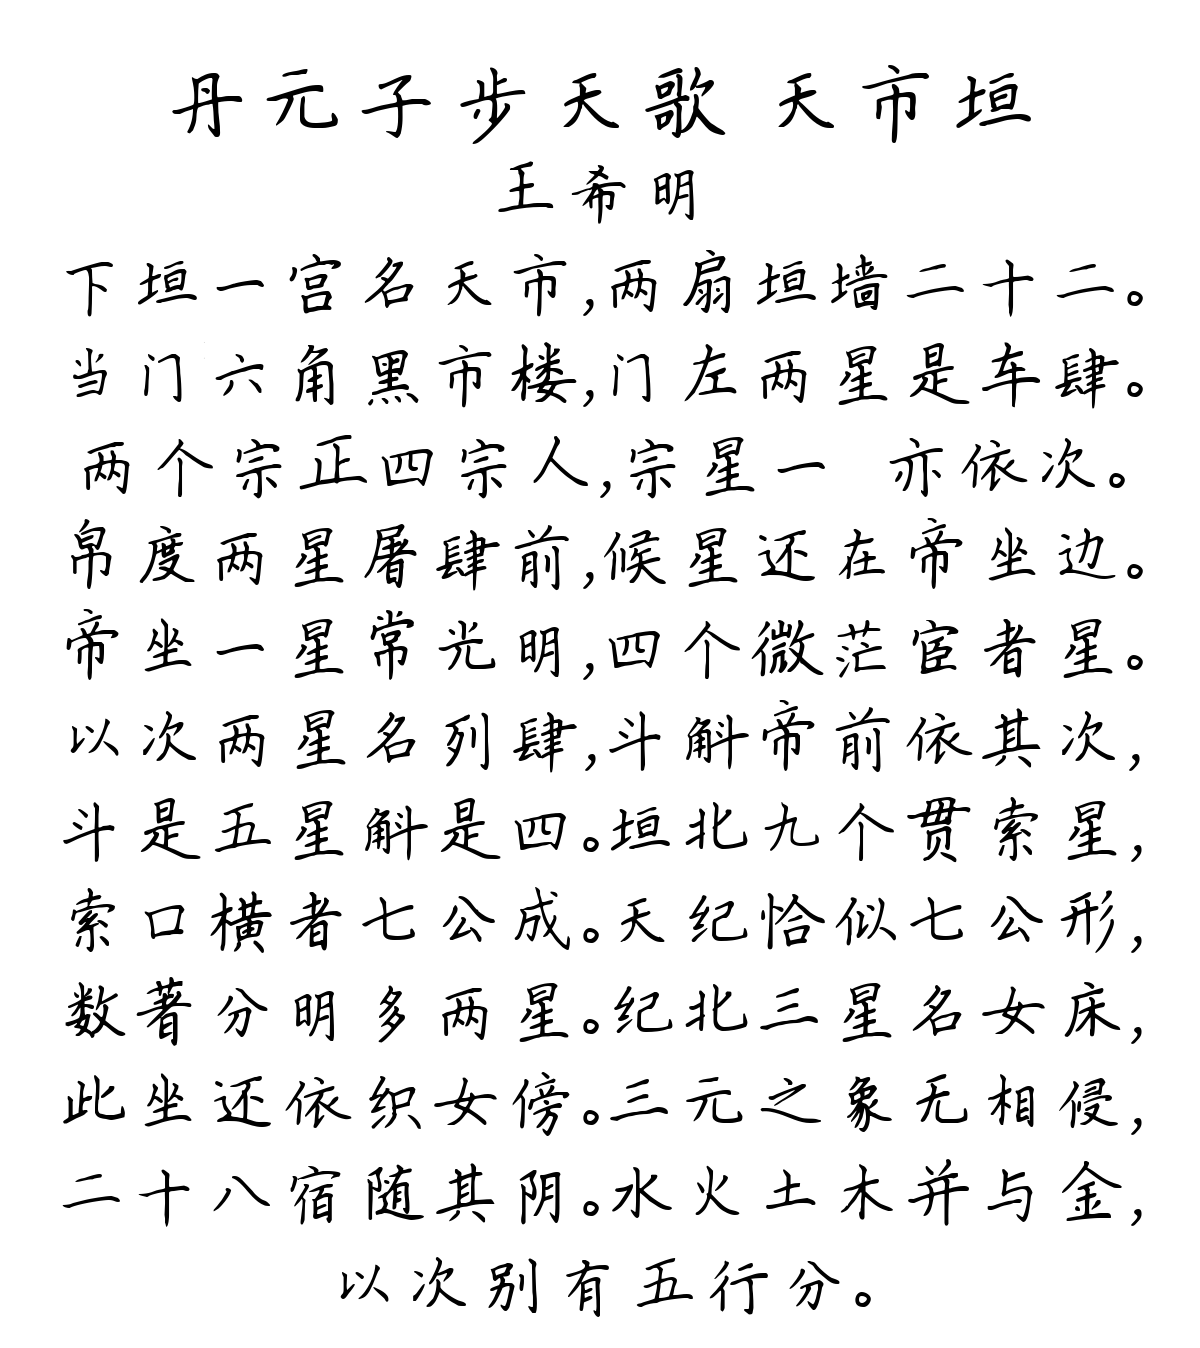 丹元子步天歌 天市垣
王希明
下垣一宫名天市,两扇垣墙二十二。
当门六角黑市楼,门左两星是车肆。
两个宗正四宗人,宗星一 亦依次。
帛度两星屠肆前,候星还在帝坐边。
帝坐一星常光明,四个微茫宦者星。
以次两星名列肆,斗斛帝前依其次,
斗是五星斛是四。垣北九个贯索星,
索口横者七公成。天纪恰似七公形,
数著分明多两星。纪北三星名女床,
此坐还依织女傍。三元之象无相侵,
二十八宿随其阴。水火土木并与金,
以次别有五行分。